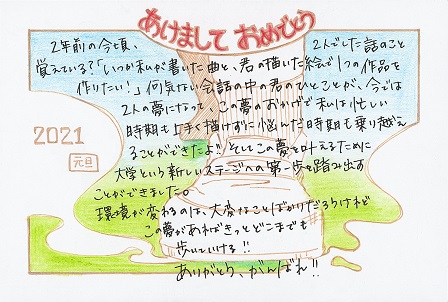 あけまして おめでとう
2年前の今頃、2人でした話のこと
覚えている?「いつか私が書いた曲と、君の描いた絵で1つの作品を
作りたい!」何気ない会話の中の君のひとことが、今では
2人の夢になって、この夢のおかげで私は忙しい
時期も上手く描けずに悩んだ時期も乗り越え
ることができたよ!そしてこの夢を叶えるために
大学という新しいステージへの第一歩を踏み出す
ことができました。
環境が変わるのは、大変なことばかりだろうけれど
この夢があればきっとどこまでも
歩いていける!!
ありがとう、がんばれ!!
2021
元旦